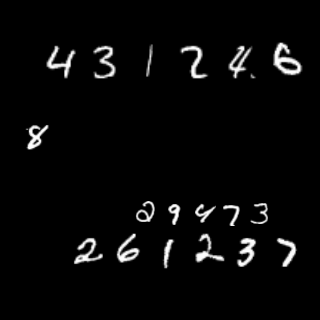 431246
8
29473
261237